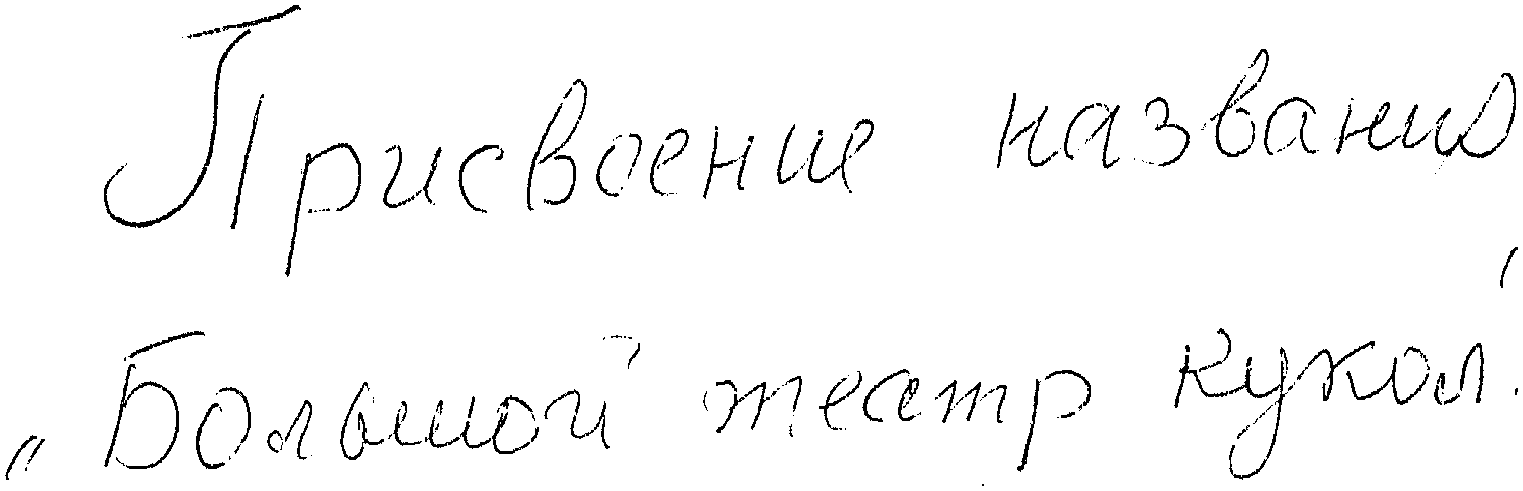 Присвоение названия
„Большой театр кукол".